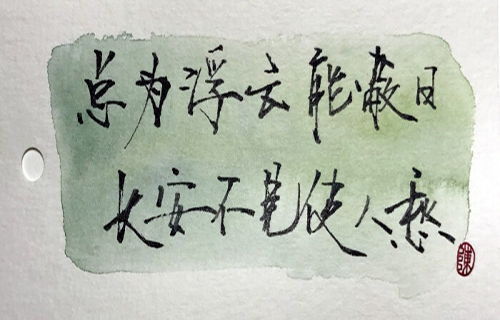 总为浮云能蔽日
长安不见使人愁
陳